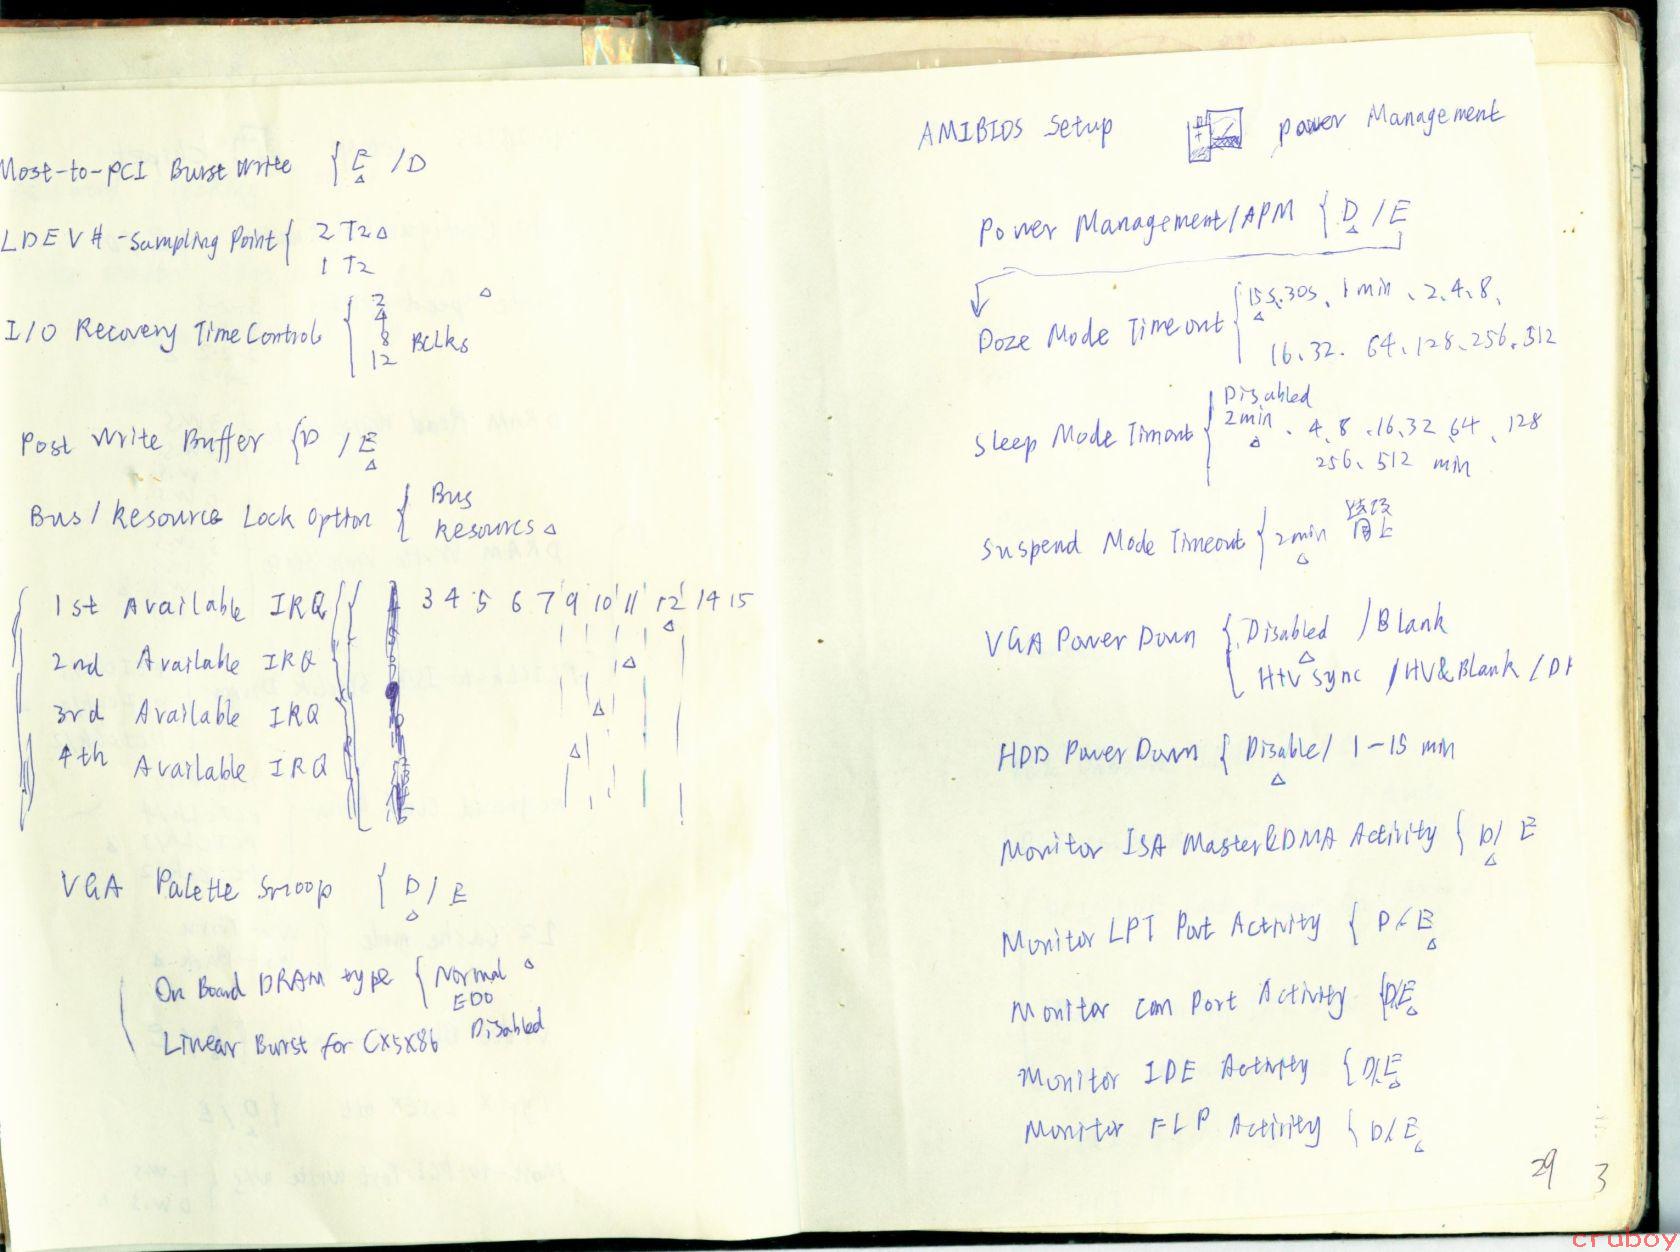 Host-to-PCI Burst Write { E / D
LDEV# -Sampling Point { 2 T2 △
1 T2
I/O Recovery Time Control { 2 △
4
8 BClks
12
Post Write Buffer { D / E
Bus / Resource Lock Option { Bus
Resources △
1st Available IRQ { 3 4 5 6 7 9 10 11 12 14 15
2nd Available IRQ
3rd Available IRQ
4th Available IRQ
VGA Palette Snoop { D / E
On Board DRAM type { Normal △
EDO
Linear Burst for CX5X86 Disabled
AMIBIOS Setup Power Management
Power Management/APM { D / E
Doze Mode Timeout { 15s、30s、1 min、2、4、8、
16、32、64、128、256、512
Sleep Mode Timout { Disabled
2min、4、8、16、32、64、128
256、512 min
Suspend Mode Timeout { 2min 同上
VGA Power Down { Disabled / Blank
H+V Sync / HV&Blank / D
HDD Power Down { Disable / 1-15 min
Monitor ISA Master&DMA Activity { D / E
Monitor LPT Port Activity { D / E
Monitor Com Port Activity { D/E
Monitor IDE Activity { D/E
Monitor FLP Activity { D/E
29 3
cruboy